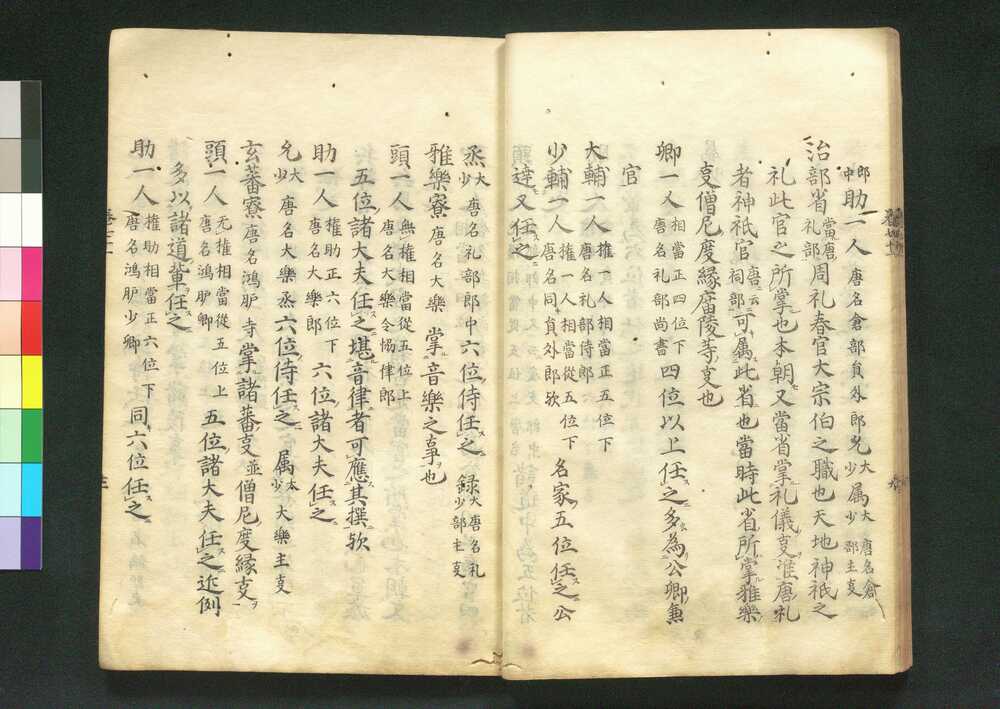 郎中助一人唐名倉部員外郎允大少属大少唐名倉部主㕝
治部省當唐礼部周礼春官大宗伯之職也天地神祇之
礼此官之所掌也本朝又當省掌礼儀㕝准唐礼
者神祇官唐云祠部可属此省也當時此省所掌雅樂
㕝僧尼度縁廟陵等㕝也
卿一人相當正四位下唐名礼部尚書四位以上任之多為公卿兼
官
大輔一人権一人相當正五位下唐名礼部侍郎
少輔一人権一人相當從五位下唐名同員外郎欤名家五位任之公
達又任之
丞大少唐名礼部郎中六位侍任之録大少唐名礼部主㕝
雅樂寮唐名大樂掌音樂之事也
頭一人無権相當從五位上唐名大樂令協律郎
五位諸大夫任之堪音律者可應其撰欤
助一人権助正六位下唐名大樂郎六位諸大夫任之
允大少唐名大樂丞六位侍任之属大少大樂主㕝
玄蕃寮唐名鴻胪寺掌諸蕃㕝並僧尼度縁㕝
頭一人无権相當從五位上唐名鴻胪卿五位諸大夫任之近例
多以諸道輩任之
助一人権助相當正六位下唐名鴻胪少卿同六位任之